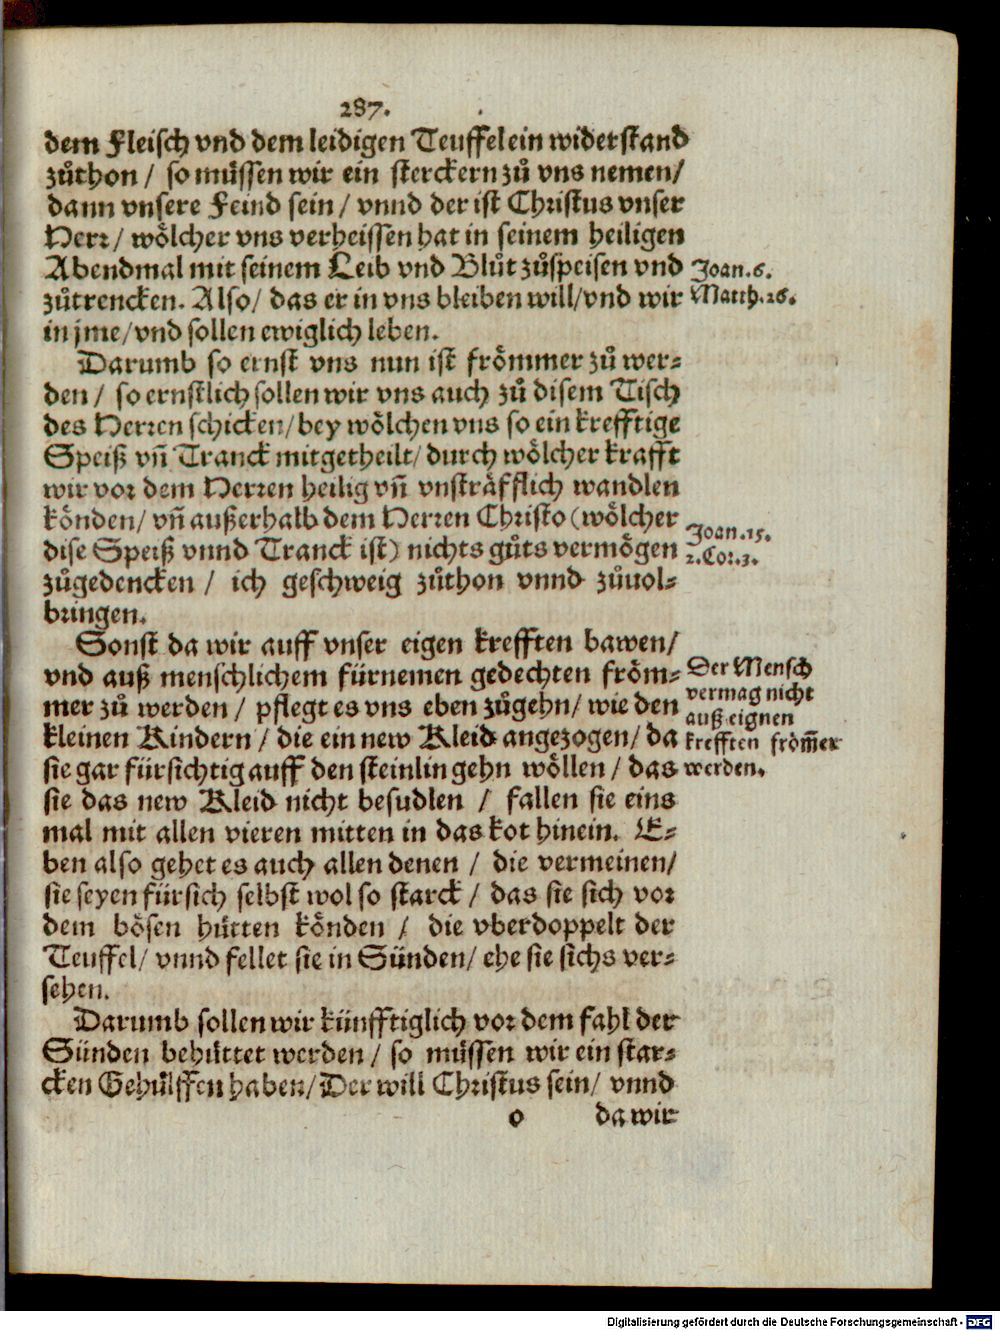 287.
dem Fleisch vnd dem leidigen Teuffel ein widerstand
zůthon / so müssen wir ein sterckern zů vns nemen/
dann vnsere Feind sein / vnnd der ist Christus vnser
Herr / wölcher vns verheissen hat in seinem heiligen
Abendmal mit seinem Leib vnd Blůt zůspeisen vnd
Joan. 6.
zůtrencken. Also / das er in vns bleiben will/vnd wir
Matth. 26.
in jme/vnd sollen ewiglich leben.
Darumb so ernst vns nun ist frömmer zů wer⸗
den / so ernstlich sollen wir vns auch zů disem Tisch
des Herren schicken/bey wölchen vns so ein krefftige
Speiß vñ Tranck mitgetheilt/durch wölcher krafft
wir vor dem Herren heilig vñ vnsträfflich wandlen
könden/ vñ außerhalb dem Herren Christo (wölcher
Joan. 15.
dise Speiß vnnd Tranck ist) nichts gůts vermögen
2. Cor. 3.
zůgedencken / ich geschweig zůthon vnnd zůuol⸗
bringen.
Sonst da wir auff vnser eigen krefften bawen/
vnd auß menschlichem fürnemen gedechten fröm⸗
Der Mensch
mer zů werden / pflegt es vns eben zůgehn/ wie den
vermag nicht
auß eignen
kleinen Kindern / die ein new Kleid angezogen/ da
krefften frõmer
sie gar fürsichtig auff den steinlin gehn wöllen / das
werden.
sie das new Kleid nicht besudlen / fallen sie eins
mal mit allen vieren mitten in das kot hinein. E⸗
ben also gehet es auch allen denen / die vermeinen/
sie seyen fürsich selbst wol so starck / das sie sich vor
dem bösen hütten könden / die vberdoppelt der
Teuffel/ vnnd fellet sie in Sünden/ ehe sie sichs ver⸗
sehen.
Darumb sollen wir künfftiglich vor dem fahl der
Sünden behüttet werden / so müssen wir ein star⸗
cken Gehülffen haben/Der will Christus sein/ vnnd
o da wir
Digitalisierung gefördert durch die Deutsche Forschungsgemeinschaft - DFG